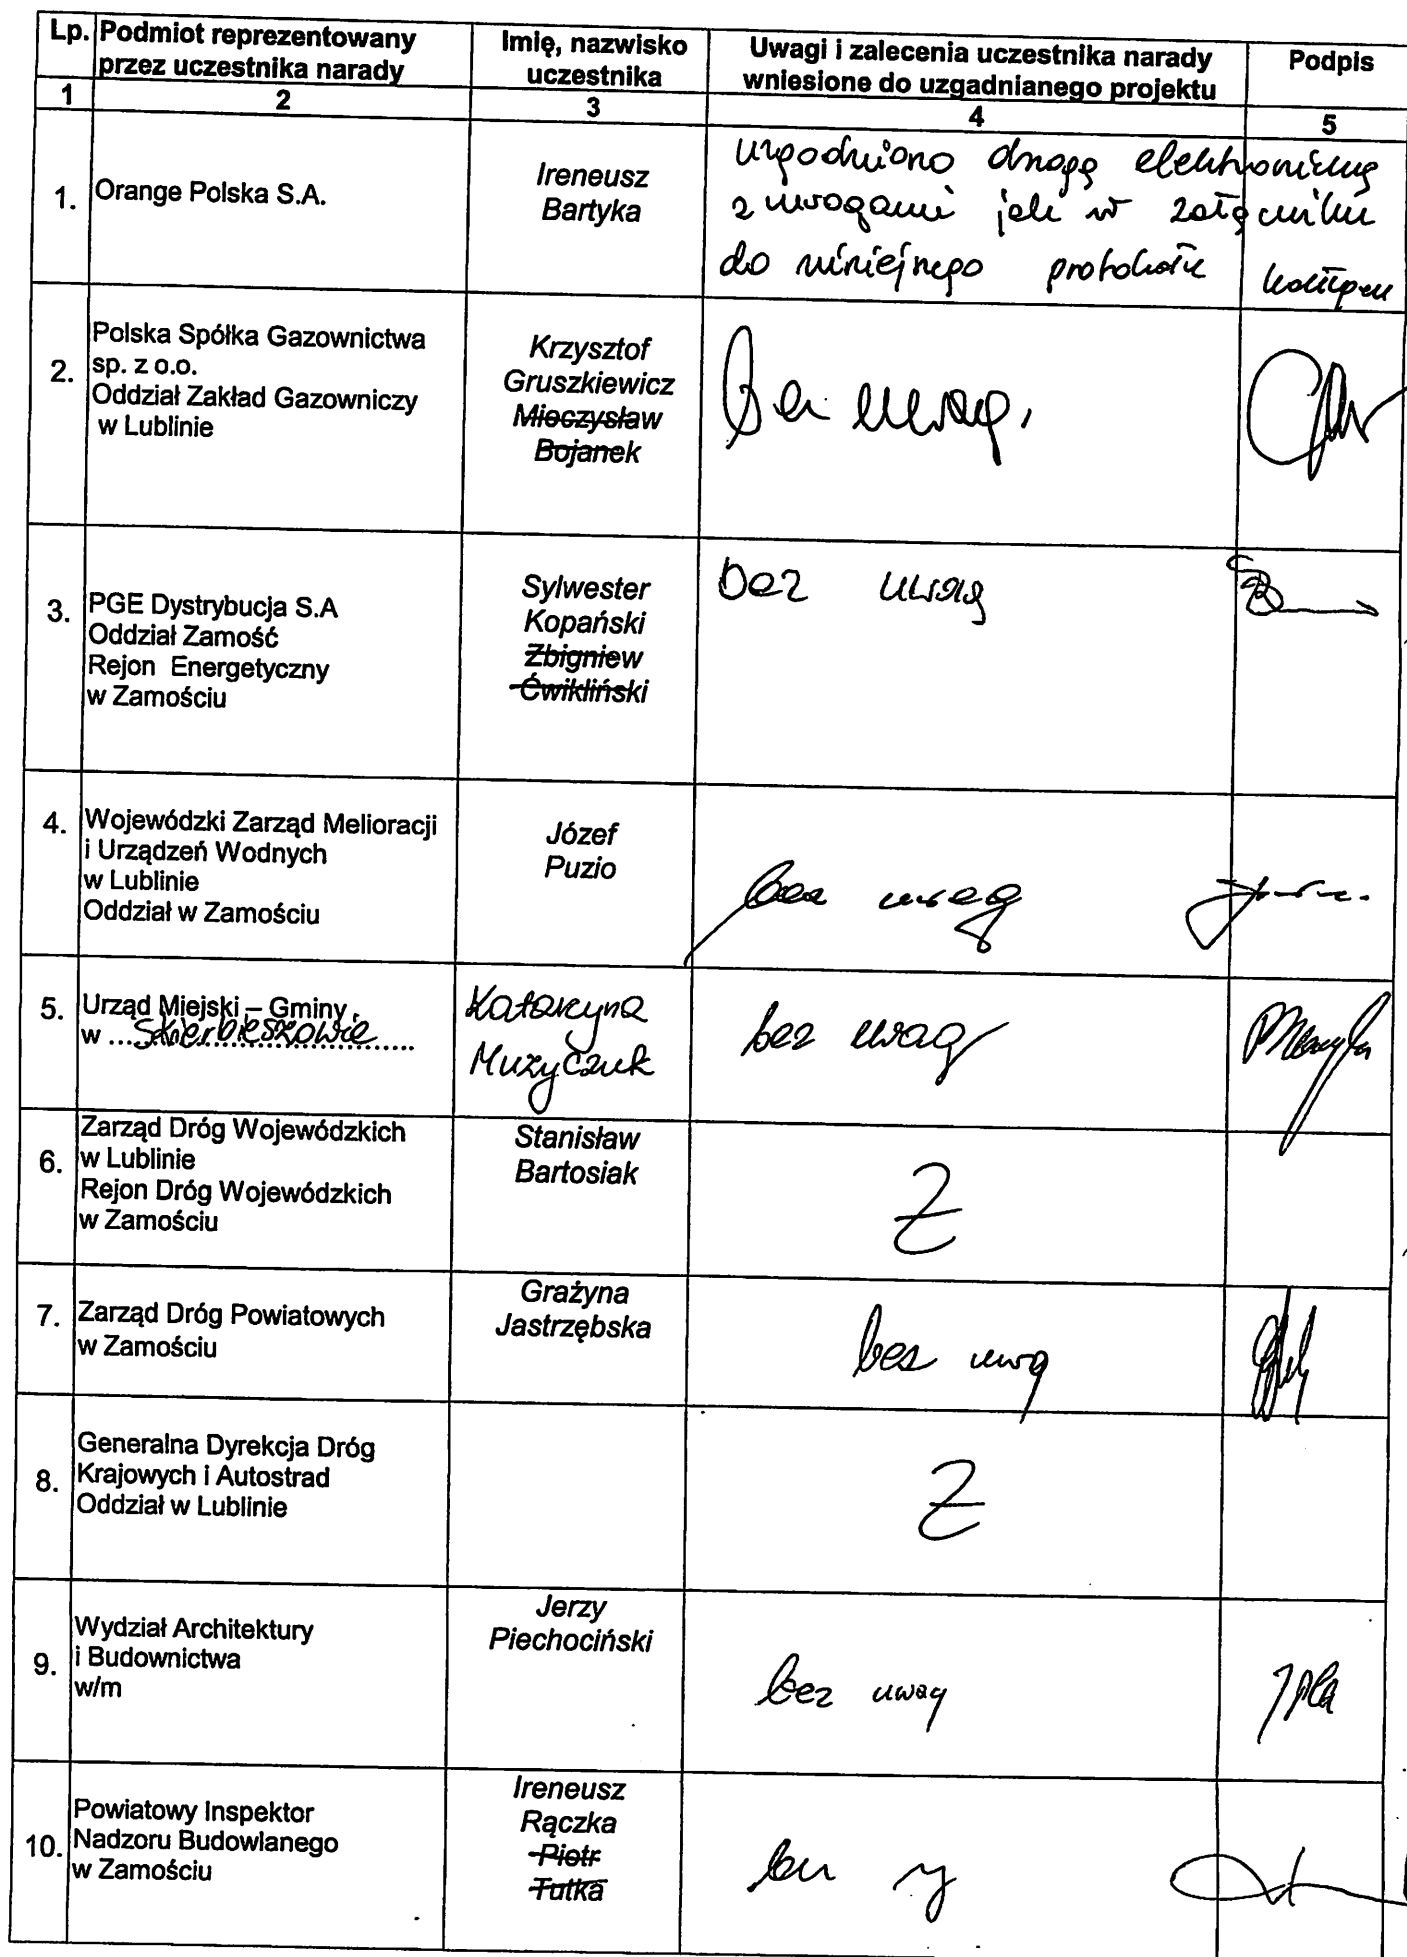 Lp. Podmiot reprezentowany przez uczestnika narady
Imię, nazwisko uczestnika
Uwagi i zalecenia uczestnika narady wniesione do uzgadnianego projektu
Podpis
1 2 3 4 5
1. Orange Polska S.A.
Ireneusz
Bartyka
uzgodniono drogą elektroniczną
z uwagami jak w załączniku
do niniejszego protokołu
2. Polska Spółka Gazownictwa
sp. z o.o.
Oddział Zakład Gazowniczy
w Lublinie
Krzysztof
Gruszkiewicz
Mieczysław
Bojanek
Bez uwag.
3. PGE Dystrybucja S.A
Oddział Zamość
Rejon Energetyczny
w Zamościu
Sylwester
Kopański
Zbigniew
Ćwikliński
bez uwag
4. Wojewódzki Zarząd Melioracji
i Urządzeń Wodnych
w Lublinie
Oddział w Zamościu
Józef
Puzio
bez uwag
5. Urząd Miejski – Gminy
w ...Skierbieszowie...
Katarzyna
Muzyczuk
bez uwag
6. Zarząd Dróg Wojewódzkich
w Lublinie
Rejon Dróg Wojewódzkich
w Zamościu
Stanisław
Bartosiak
Z
7. Zarząd Dróg Powiatowych
w Zamościu
Grażyna
Jastrzębska
bez uwag
8. Generalna Dyrekcja Dróg
Krajowych i Autostrad
Oddział w Lublinie
Z
9. Wydział Architektury
i Budownictwa
w/m
Jerzy
Piechociński
bez uwag
10. Powiatowy Inspektor
Nadzoru Budowlanego
w Zamościu
Ireneusz
Rączka
Piotr
Tutka